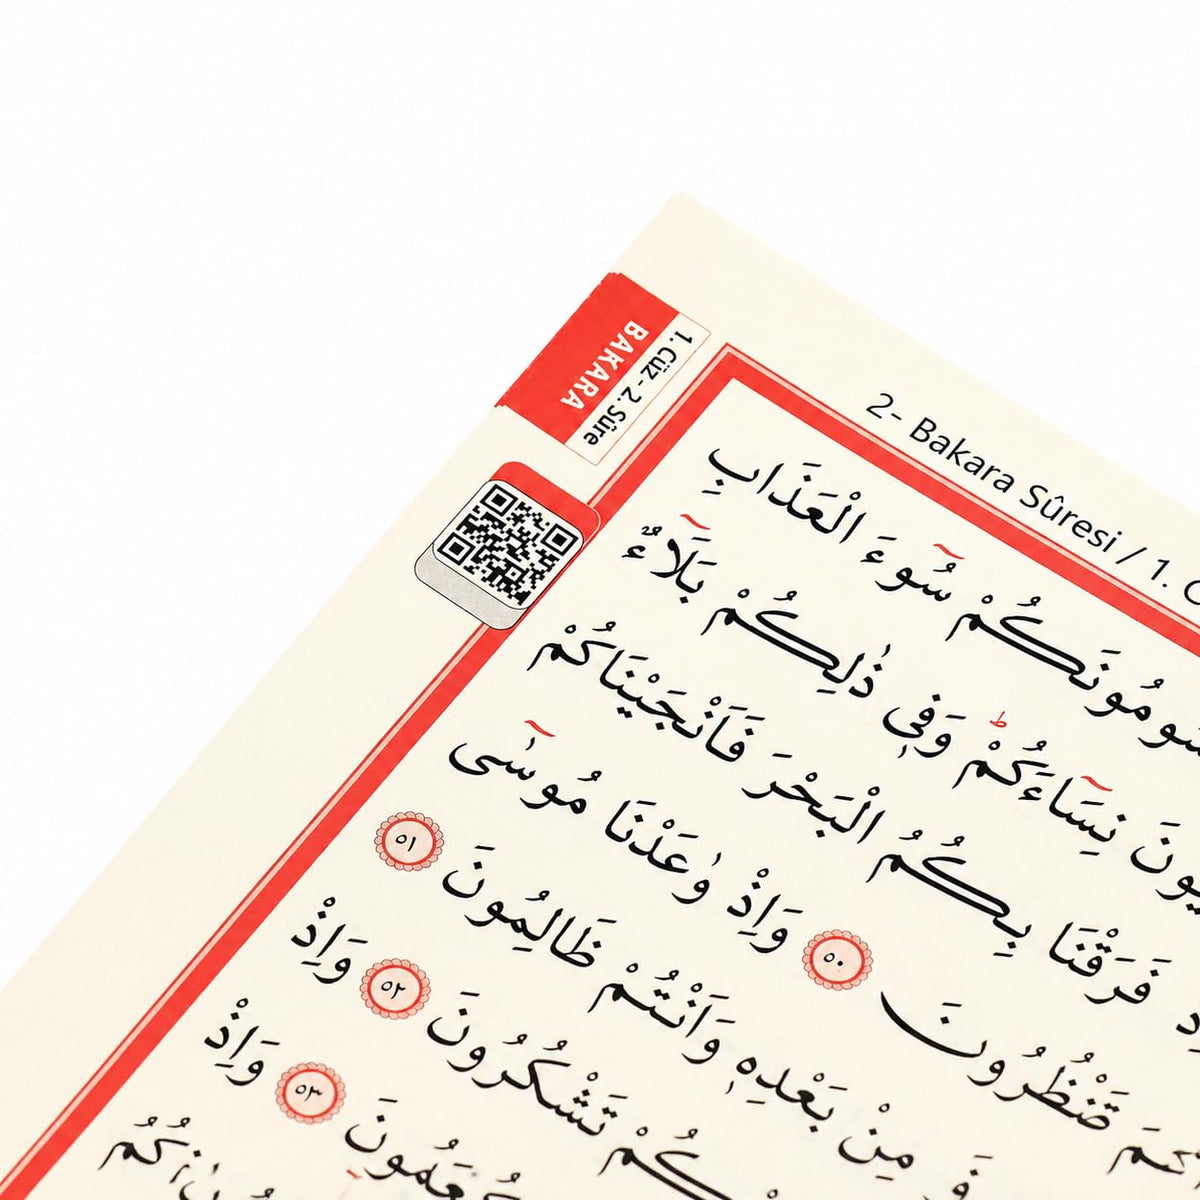 BAKARA
1. Cüz - 2. Sûre
2- Bakara Sûresi / 1.
سُٓوءَ الْعَذَابِ
نِسَٓاءَكُمْۜ وَفٖي ذٰلِكُمْ بَلَٓاءٌ
فَرَقْنَا بِكُمُ الْبَحْرَ فَاَنْجَيْنَاكُمْ
٥٠ وَاِذْ وٰعَدْنَا مُوسٰٓى
مِنْ بَعْدِهٖ وَاَنْتُمْ ظَالِمُونَ ٥١
تَشْكُرُونَ ٥٢ وَاِذْ
٥٣ وَاِذْ